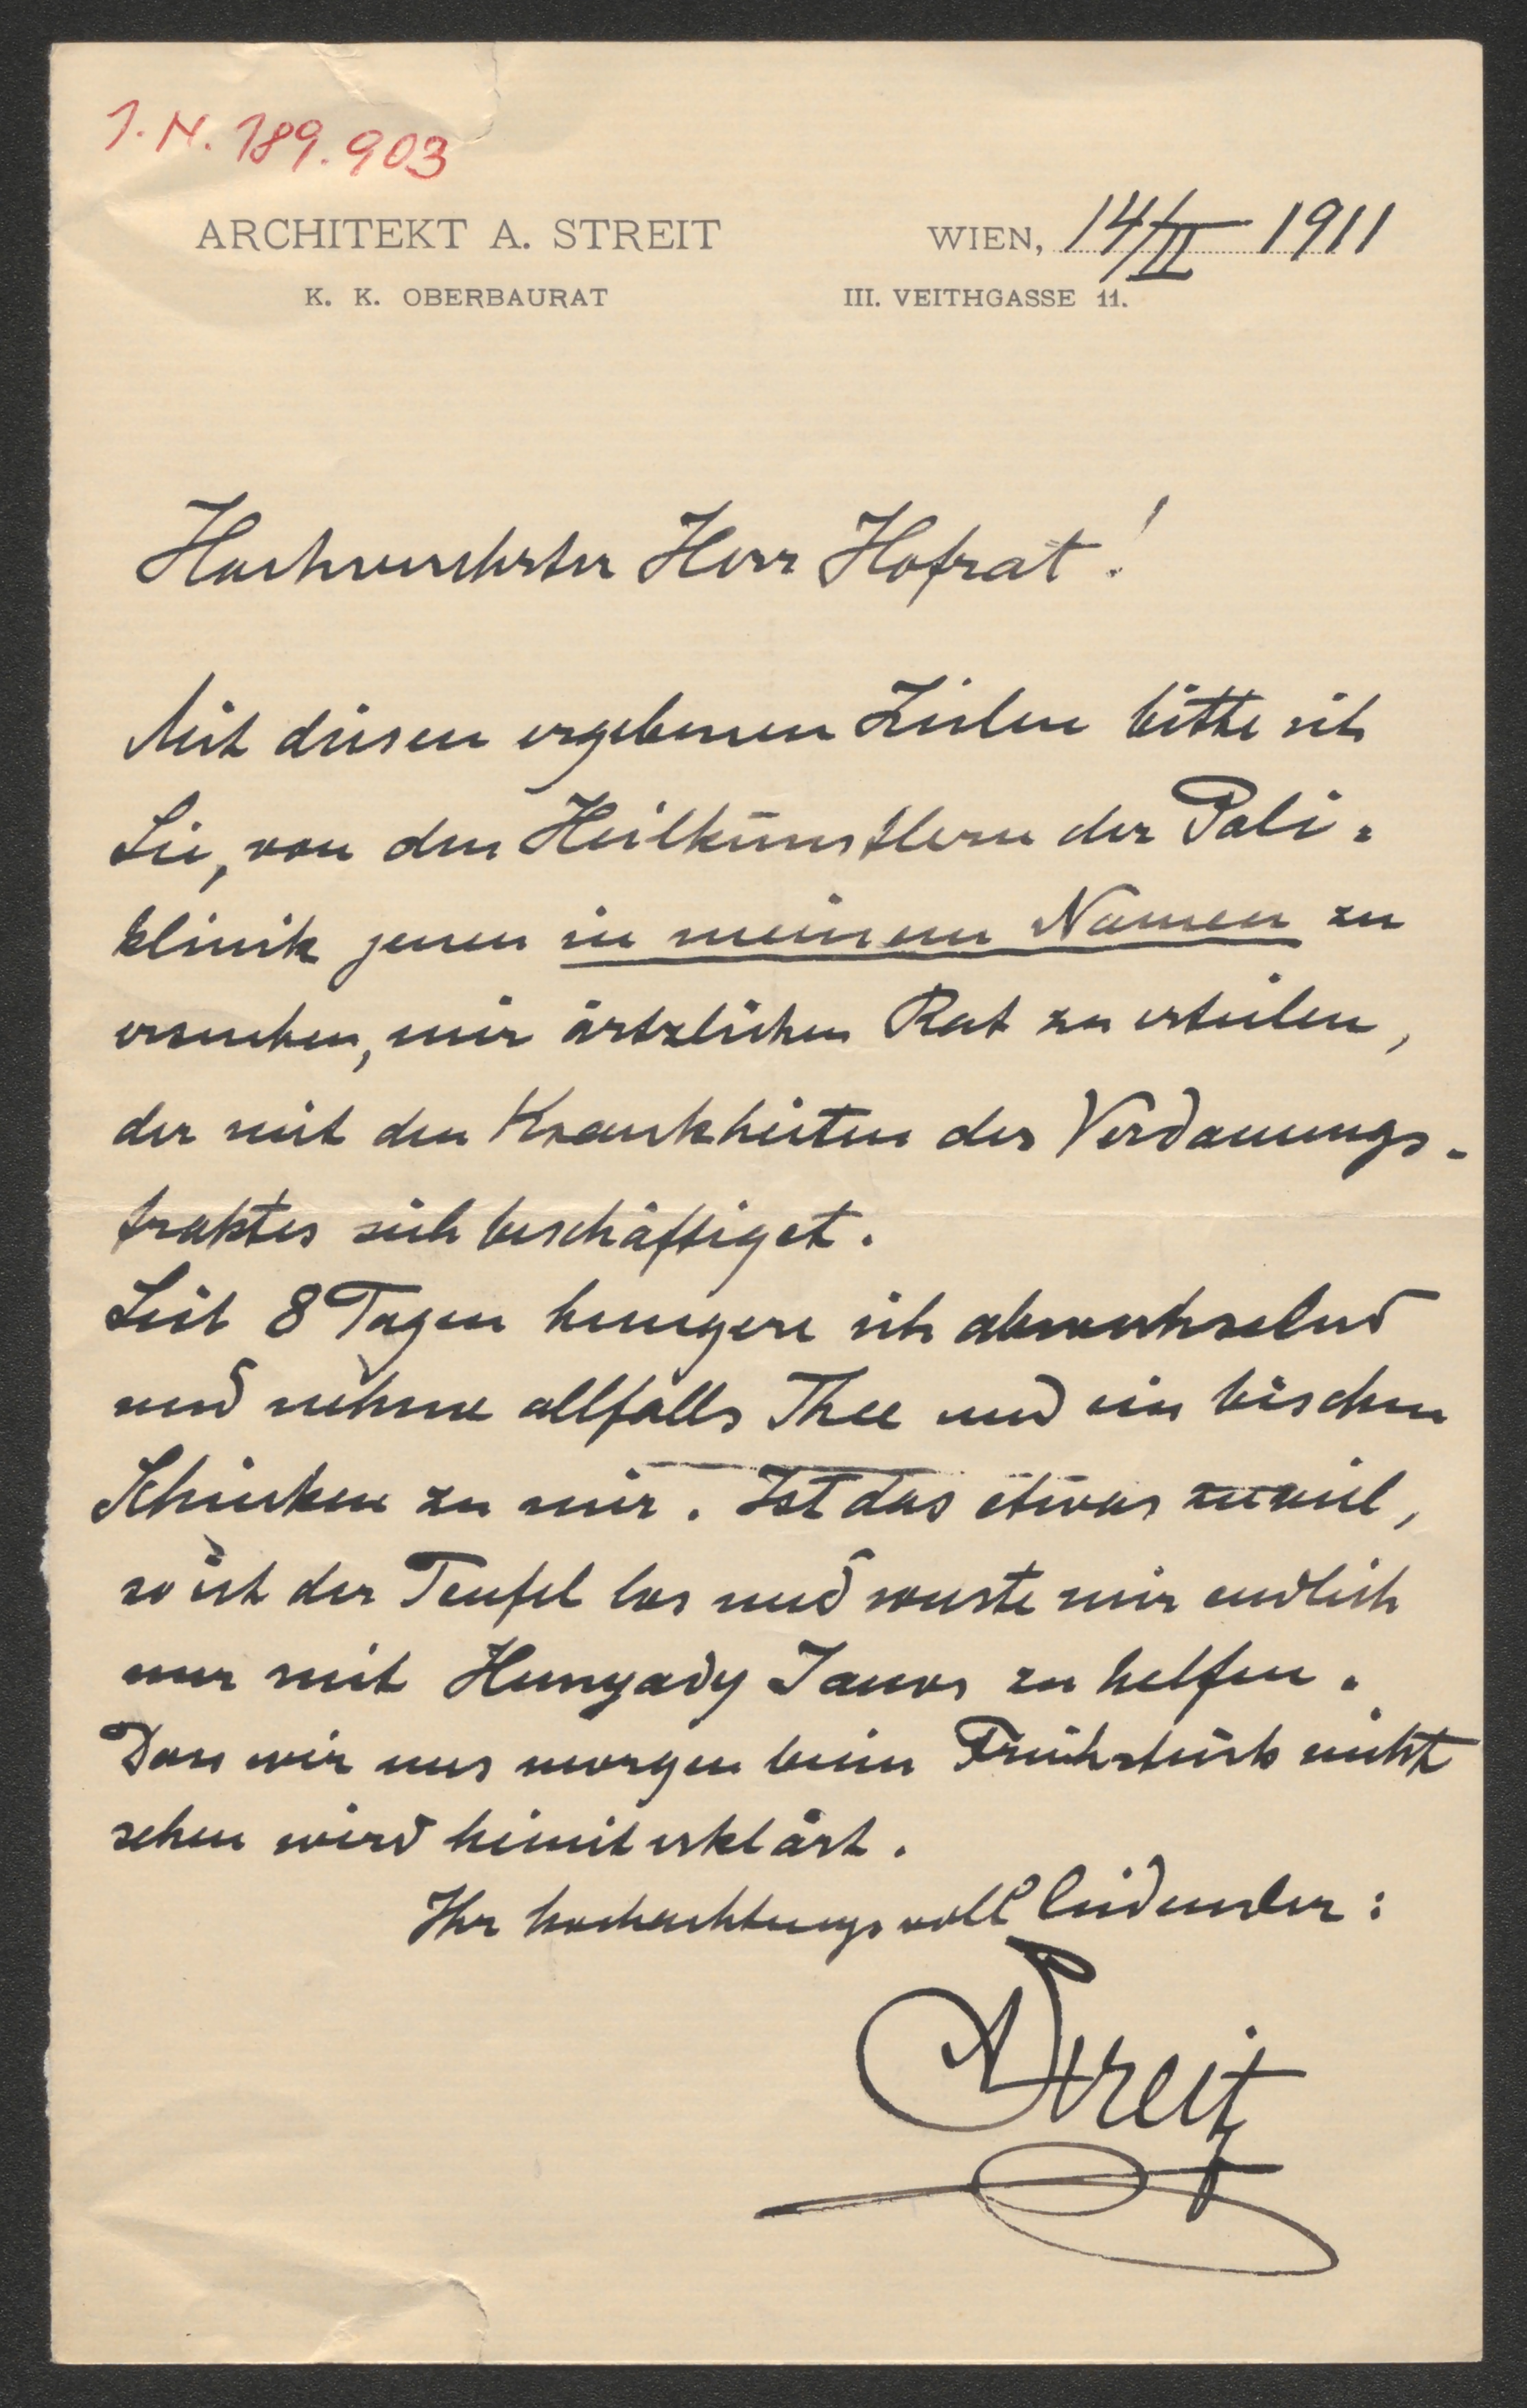 I.N. 189.903
ARCHITEKT A. STREIT
K. K. OBERBAURAT
WIEN, 14/II 1911
III. VEITHGASSE 11.
Hochverehrter Herr Hofrat!
Mit diesen ergebenen Zeilen bitte ich
Sie, von den Heilkünstlern der Poli-
klinik jenen in meinem Namen zu
ersuchen, mir ärtzlichen Rat zu erteilen,
der mit den Krankheiten des Verdauungs-
traktes sich beschäftiget.
Seit 8 Tagen hungere ich abwechselnd
und nehme allfalls Thee und ein bischen
Schinken zu mir. Ist das etwas zuviel,
so ist der Teufel los und wuste mir endlich
nur mit Hunyady Janos zu helfen.
Dass wir uns morgen beim Frühstück nicht
sehen wird hiemit erklärt.
Ihr hochachtungsvoll leidender:
AStreit